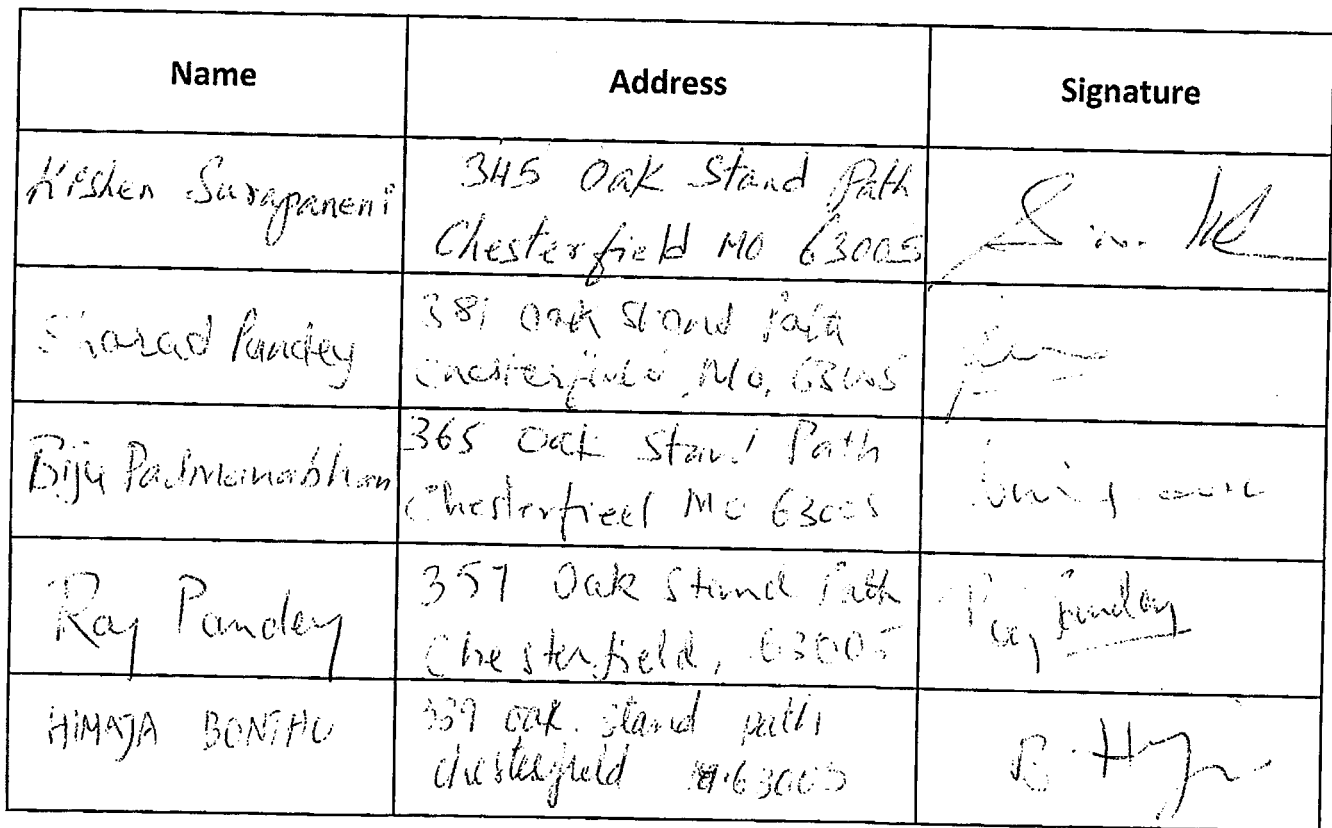 Name Address Signature
Kishen Surapaneni
345 Oak Stand Path
Chesterfield MO 63005
Sharad Pandey
381 Oak Stand Path
Chesterfield, Mo, 63005
Biju Padmanabhan
365 Oak Stand Path
Chesterfieel MO 63005
Raj Pandey
357 Oak Stand Path
Chesterfield, 63005
Raj Pandey
HIMAJA BONTHU
339 oak stand path
chesterfield 63005